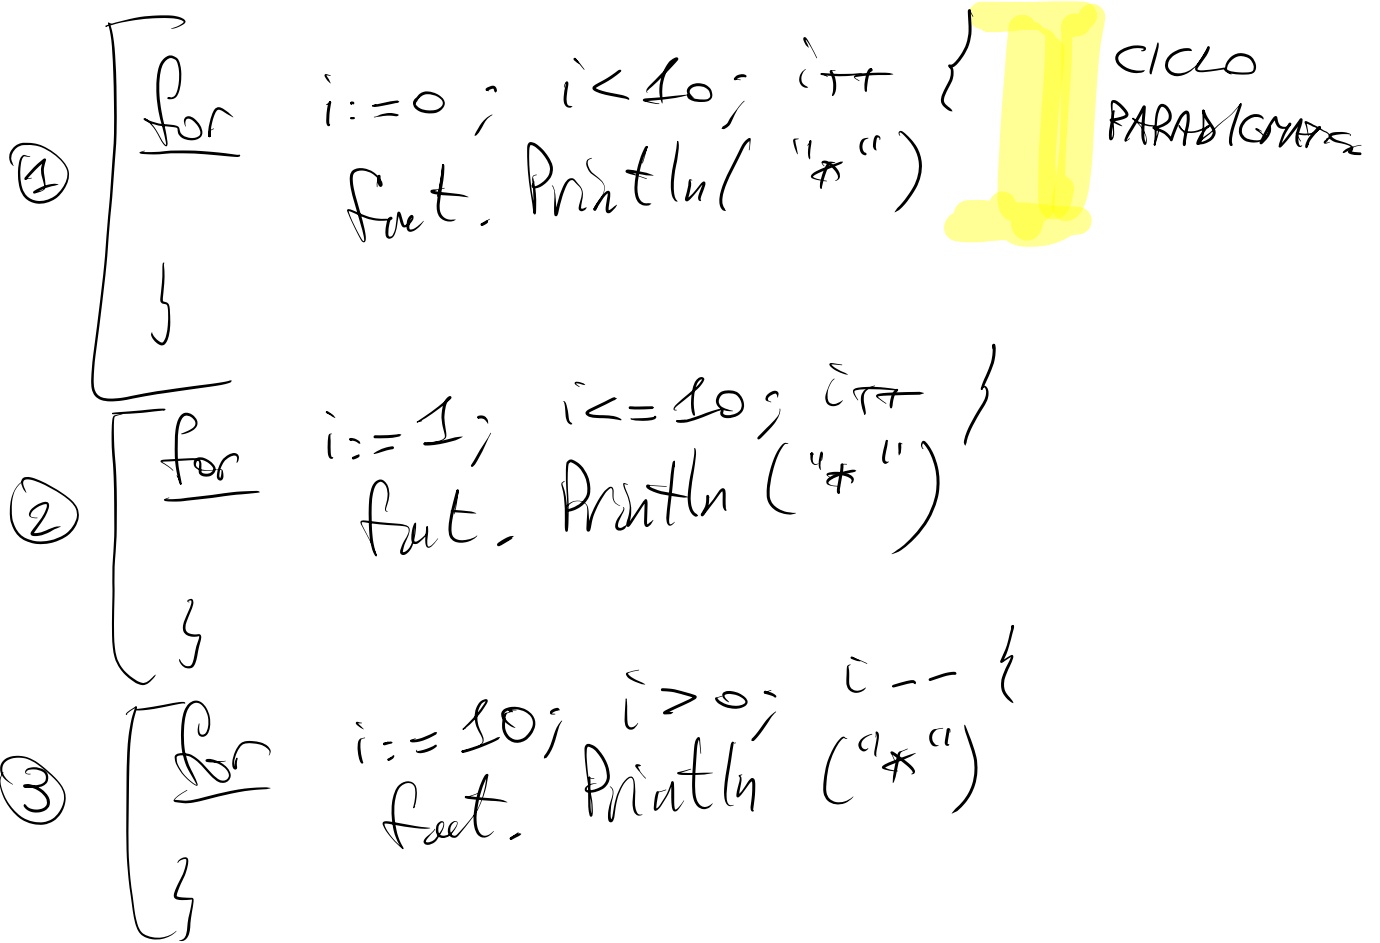 ① for i:=0; i<10; i++ {
fmt.Println("*")
}
CICLO
PARADIGMATICO
② for i:=1; i<=10; i++ {
fmt.Println("*")
}
③ for i:=10; i>0; i-- {
fmt.Println("*")
}